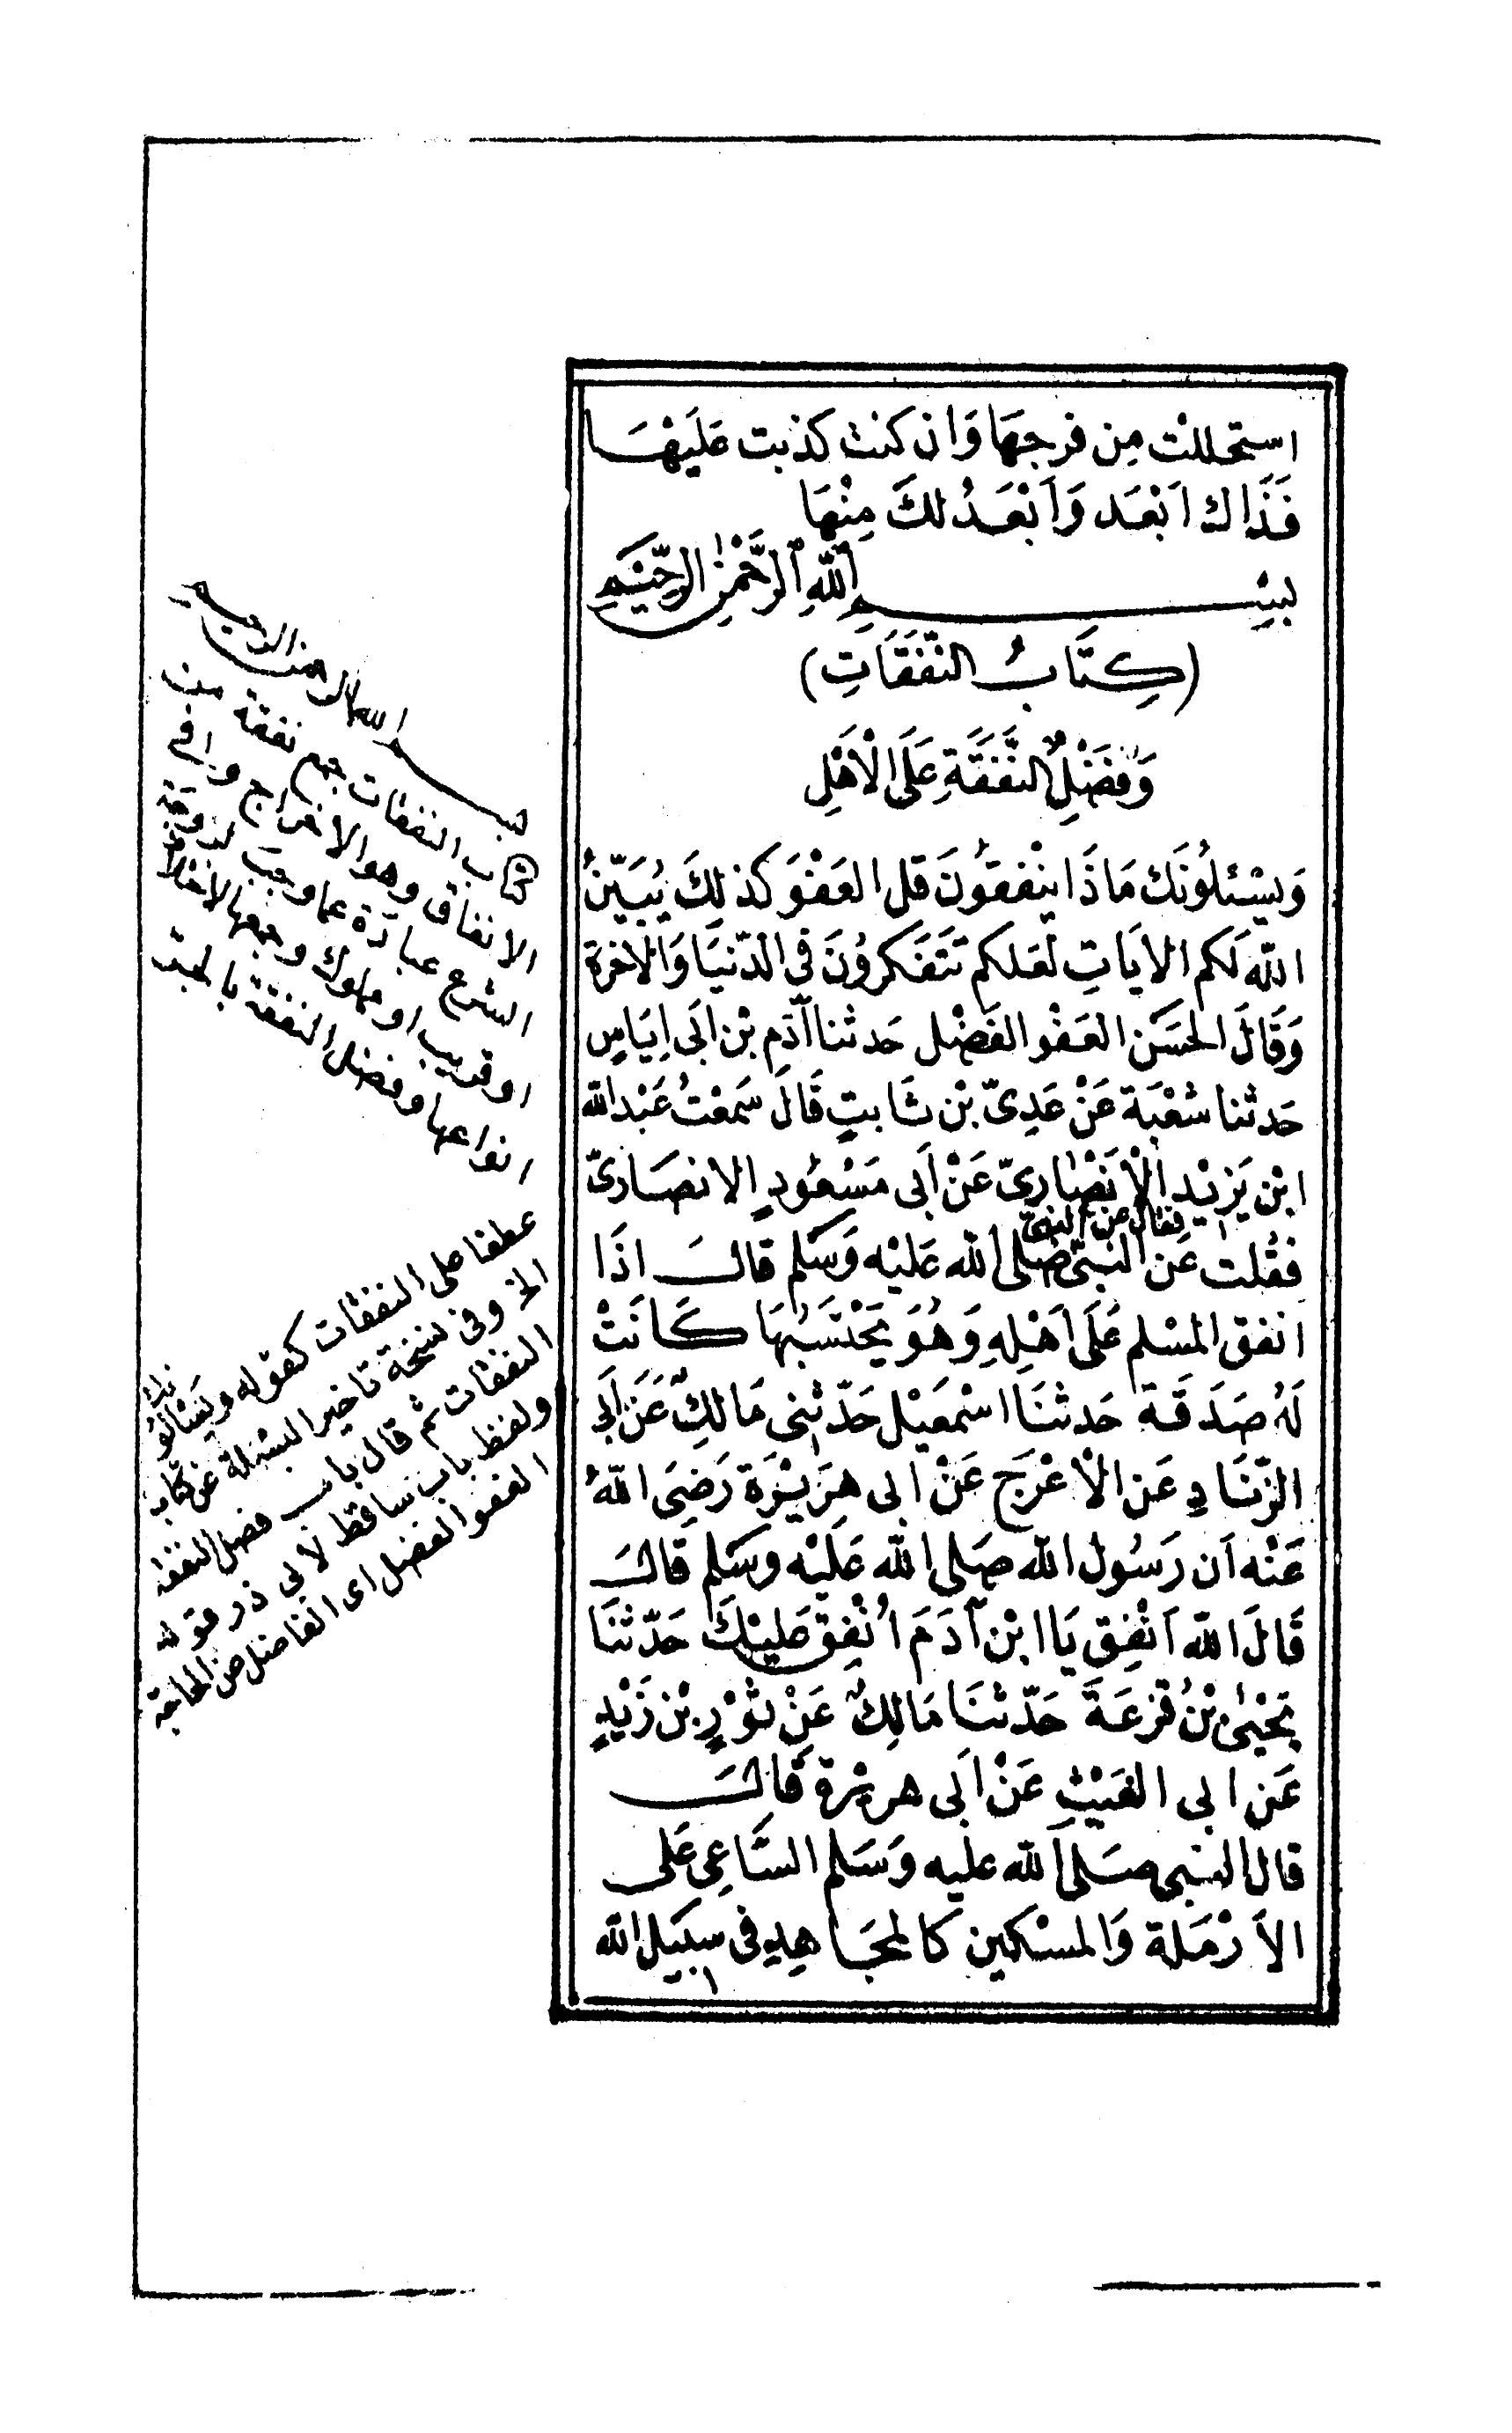 استحللت مِن فرجهَا وَان كنت كذبت عَلَيْهَا
فَذَاك اَبْعَد وَاَبْعَدُ لكَ مِنْهَا
بسْمِ اللهِ الرَّحْمٰنِ الرَّحِيْمِ
(كِتَابُ النَّفَقَاتِ)
وَفَضْلِ النَّفَقَةِ عَلَى الْاَهْلِ
وَيسْئلُونَك مَاذَا ينْفِقُونَ قل العَفْوَ كذلِكَ يُبَيِّنُ
الله لَكم الاٰيَاتِ لعَلكم تَتَفَكرُونَ فى الدّنيَا وَالاخرَة
وَقَالَ الحَسَن العَفْو الفَضْل حَدثنا آدَم بْن اَبى اِيَاسٍ
حَدثنا شعْبَة عَنْ عَدِىّ بْن ثَابتٍ قَالَ سَمعْتُ عَبْد الله
ابْن يَزيْد الْاَنْصَارىّ عَنْ اَبى مَسْعُودٍ الانصَارىّ
فقُلت عَن النبىّ فقال عن النبىّ صَلى الله عَليْه وَسَلم قالَ اذَا
انفق المسْلم عَلَى اَهْلِهِ وَهُوَ يَحْتَسَبُهَا كَانَتْ
لَهُ صَدَقَة حَدثنَا اسْمعيْل حَدّثنى مَالكٌ عَنْ اَبى
الزّنَادِ عَن الْاَعْرَج عَنْ ابى هرَيْرَة رَضِىَ اللهُ
عَنْه اَن رَسُول الله صَلى الله عَلَيْه وسَلم قَالَ
قَالَ الله اَنْفِق يَا ابْن آدَمَ اُنْفِقْ عَليْكَ حَدّثنَا
يَحْيىٰ بْنُ قزعَةَ حَدّثنَا مَالِكٌ عَنْ ثَوْرِ بْن زَيْدٍ
عَن ابى الغَيْثِ عَنْ اَبى هريْرة قَالَ
قال النبى صَلى الله عليه وَسَلم السَّاعِى عَلى
الاَرْمَلة وَالمسْكين كالمجَاهِدِ فى سبيَل الله
بسم الله الرحمن الرحيم
كتاب النفقات جمع نفقة من
الانفاق وهو الاخراج
الشرع عبارة عما وجب لزوجة
او قريب او مملوك وجمعها لاختلاف
انواعها وفضل النفقة بالجر
عطفا على النفقات كقوله ويسألونك
الخ وفى نسخة تاخير البسملة عن كتاب
النفقات ثم قال باب فضل النفقة
ولفظ باب ساقط لابى ذر قوله
العفو الفضل اى الفاضل عن الحاجة